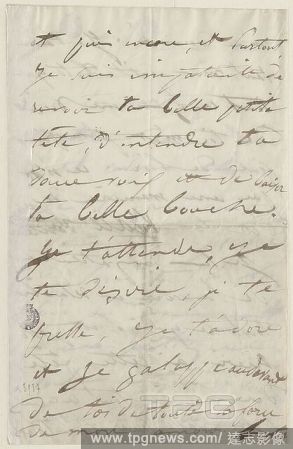 et puis encore, et surtout
je suis impatiente de
revoir ta belle petite
tête, d'entendre ta
douce voix et de baiser
ta belle bouche.
Je t'attends, je
te désire, je te
je t'adore
et je galoppe audevant
de toi de toute la force
de mon
TPG
www.tpgnews.com / 達志影像